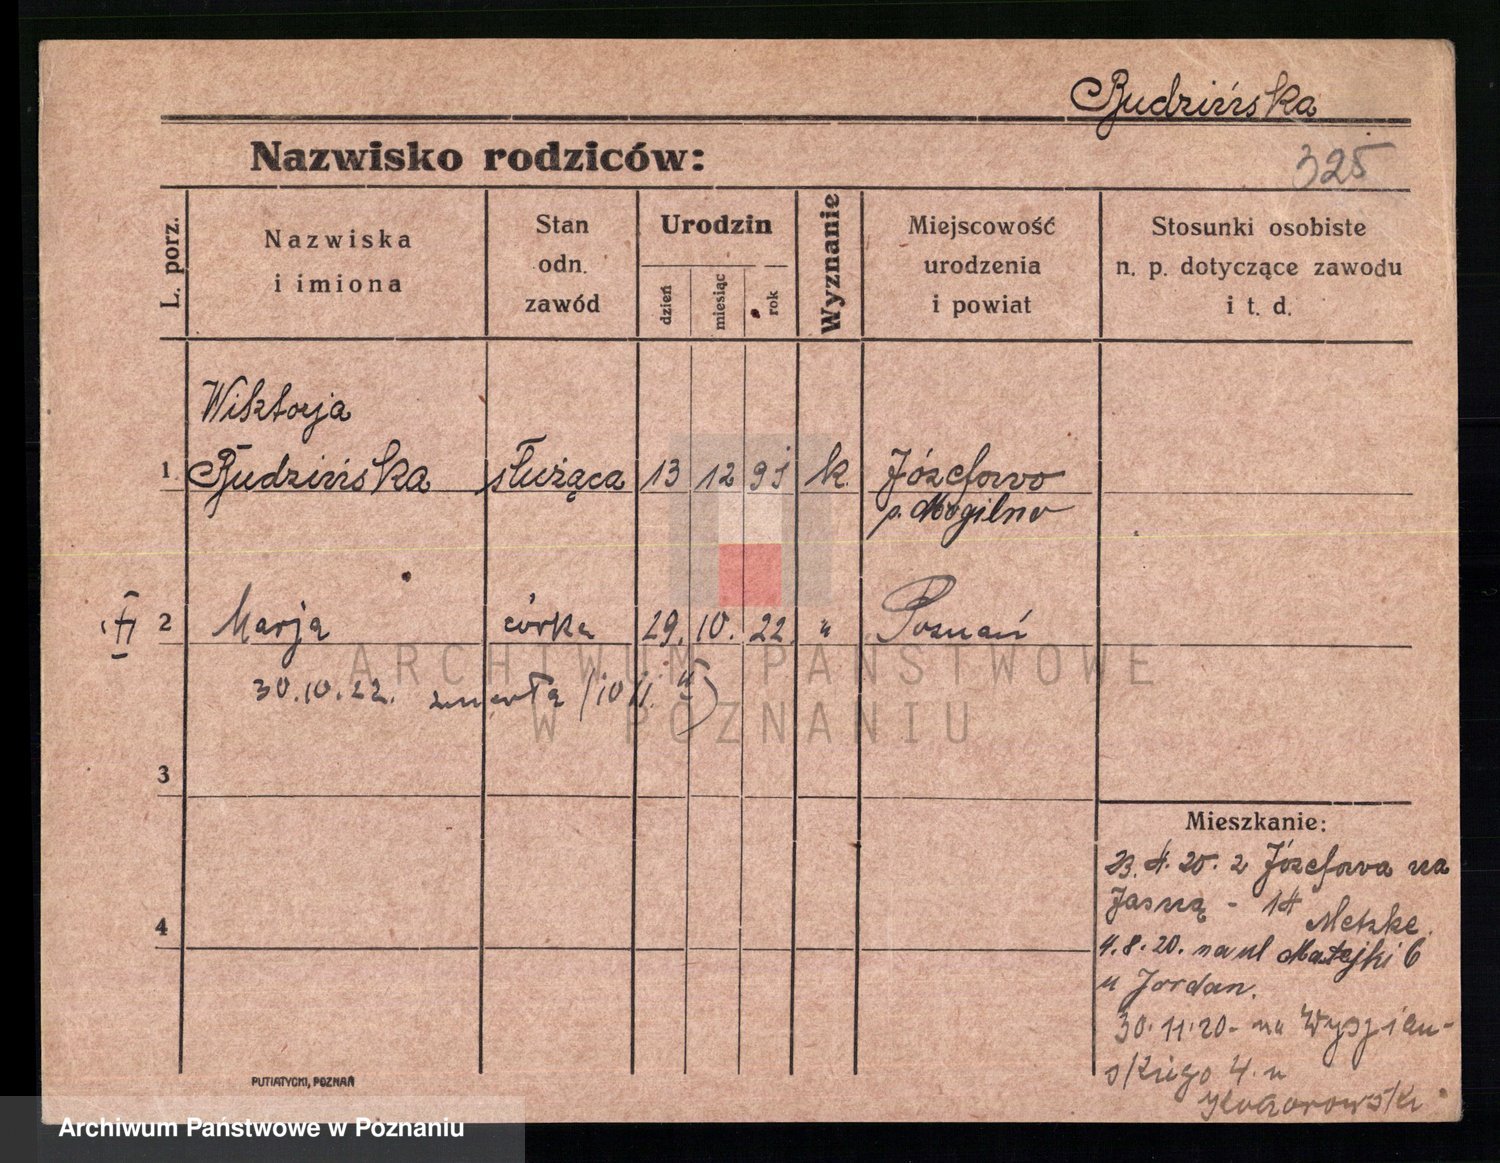 Budzińska
Nazwisko rodziców:
325
L. porz.
Nazwiska
i imiona
Stan
odn.
zawód
Urodzin
dzień
miesiąc
rok
Wyznanie
Miejscowość
urodzenia
i powiat
Stosunki osobiste
n. p. dotyczące zawodu
i t. d.
Wiktorja
1 Budzińska służąca 13 12 91 k. Józefowo
p. Mogilno
2 Marja córka 29. 10. 22. " Poznań
30.10.22. zmarła (10 11.
3
Mieszkanie:
23.4.20. z Józefowa na
Jasną - 14 Metzke.
4
4.8.20. na ul Matejki 6
u Jordan.
30.11.20. na Wyspiań-
skiego 4. u
PUTIATYCKI, POZNAŃ
ARCHIWUM PAŃSTWOWE
W POZNANIU
Archiwum Państwowe w Poznaniu